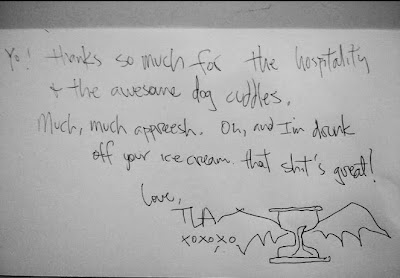 Yo! thanks so much for the hospitality
& the awesome dog cuddles.
Much, much appreesh. Oh, and I'm drunk
off your ice cream. that shit's great!
Love,
TLA
xoxo,xo